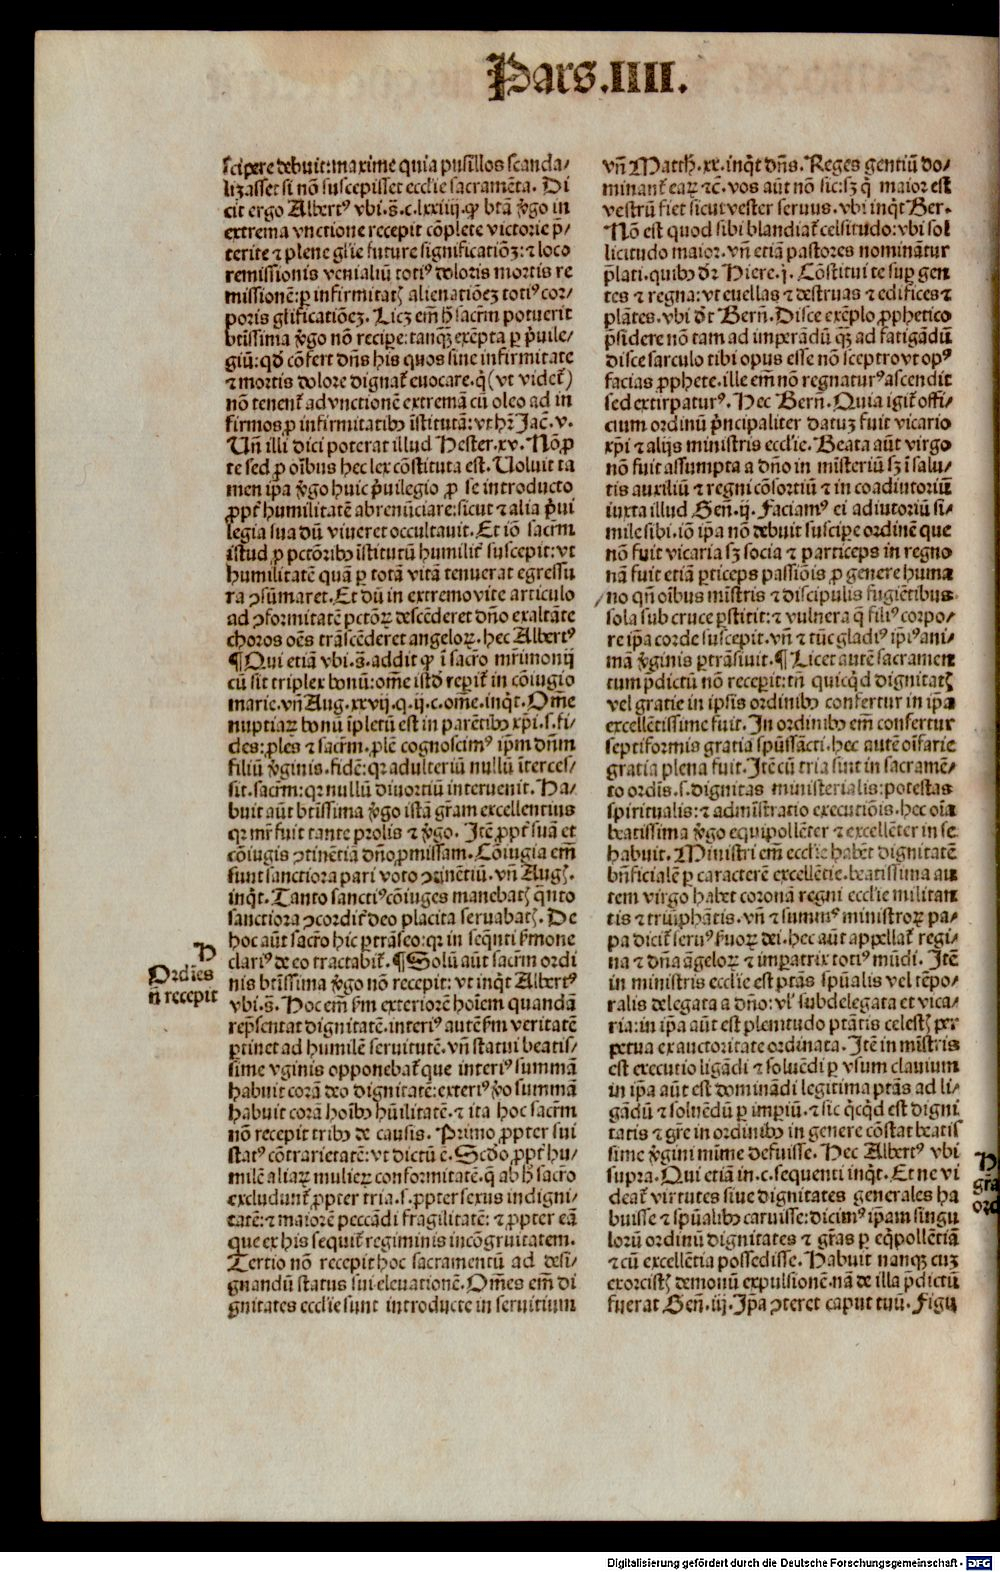 Pars.IIII.
scipere debuit:maxime quia pusillos scanda/
lizasset si nō suscepisset ecclie sacramēta. Di
cit ergo Albertꝰ vbi.s̄.c.lxxiiij.ꝙ btā v̾go in
extrema vnctione recepit cōplete victorie p̄/
terite ⁊ plene glie future significatiōꝫ:⁊ loco
remissionis venialiū totiꝰ doloris mortis re
missionē:ꝑ infirmitatꝫ alienatiōeꝫ totiꝰ cor/
poris glificatiōeꝫ. Licꝫ em̄ h̄ sacr̄m potuerit
btissima v̾go nō recipe: tanqꝫ exēpta ꝑ p̄uile/
giū:qd̄ cōfert dn̄s his quos sine infirmitate
⁊ mortis dolore dignat̄ euocare.q̄(vt videt̄)
nō tenent̄ ad vnctionē extremā cū oleo ad in
firmos ꝑ infirmitatibꝰ īstitutā: vt hr̄ Jac̄.v.
Un̄ illi dici poterat illud Hester.xv. Nō ꝓ
te sed ꝓ oībus hec lex cōstituta est. Uoluit ta
men ip̄a v̾go huic p̄uilegio ꝓ se introducto
ꝓpt̄ humilitatē abrenūciare:sicut ⁊ alia p̄ui
legia sua dū viueret occultauit. Et iō sacr̄m
istud ꝓ pctōribꝰ īstitutū humilit̄ suscepit:vt
humilitatē quā ꝑ totā vitā tenuerat egressu
ra ꝯsūmaret. Et dū in extremo vite articulo
ad ꝯformitatē pctōꝝ descēderet dn̄o exaltāte
choros oēs trāscēderet angeloꝝ. hec Albertꝰ
¶ Qui etiā vbi.s̄.addit ꝙ ī sacr̄o mr̄imonij
cū sit triplex bonū:om̄e istd̄ reperit̄ in cōiugio
marie.vn̄ Aug.xxvij.q.ij.c.om̄e.inqt̄. Om̄e
nuptiaꝝ bonū īpletū est in parētibꝰ xp̄i.s.fi/
des:ꝓles ⁊ sacr̄m.ꝓlē cognoscimꝰ ip̄m dn̄m
filiū v̾ginis.fidē:qꝛ adulteriū nullū īterces/
sit.sacr̄m:qꝛ nullū diuortiū interuenit. Ha/
buit aūt btissima v̾go istā gr̄am excellentius
qꝛ mr̄ fuit tante prolis ⁊ v̾go. Itē ꝓpt̄ suā et
cōiugis ꝯtinētiā dn̄o ꝓmissam. Cōiugia em̄
sunt sanctiora pari voto ꝯtinētiū.vn̄ Augꝫ.
inqt̄. Tanto sanctiꝰ cōiuges manebatꝫ qn̄to
sanctiora ꝯcordit̄ deo placita seruabatꝫ. De
hoc aūt sacr̄o hic ꝑtrāseo:qꝛ in seqn̄ti s̄mone
clariꝰ de eo tractabit̄. ¶ Solū aūt sacr̄m ordi
nis btissima v̾go nō recepit: vt inqt̄ Albertꝰ
vbi.s̄. Hoc em̄ s̄m exteriorē hoīem quandā
rep̄sentat dignitatē.interiꝰ autē s̄m veritatē
ꝑtinet ad humilē seruitutē.vn̄ statui beatis/
sime v̄ginis opponebat̄ que interiꝰ summā
habuit corā deo dignitatē:exteriꝰ v̾o summā
habuit corā hoībꝰ hūilitatē.⁊ ita hoc sacr̄m
nō recepit tribꝰ de causis. Primo ꝓpter sui
statꝰ cōtrarietatē:vt dictū ē. Scd̄o ꝓpt̄ hu/
milē aliaꝝ mulieꝝ conformitatē.q̄ ab h̄ sacr̄o
excludunt̄ ꝓpter tria.s.ꝓpter sexus indigni/
tatē:⁊ maiorē peccādi fragilitatē: ⁊ ꝓpter eā
que ex his sequit̄ regiminis incōgruitatem.
Tertio nō recepit hoc sacramentū ad desi/
gnandū status sui eleuationē. Om̄es em̄ di
gnitates ecclie sunt introducte in seruitium
Ordīes
n̄ recepit
vn̄ Matth.xx.inqt̄ dn̄s. Reges gentiū do/
minant̄ eaꝝ ⁊c̄.vos aūt nō sic:sꝫ q̄ maior est
vestrū fiet sicut vester seruus.vbi inqt̄ Ber.
Nō est quod sibi blandiat̄ celsitudo:vbi sol
licitudo maior.vn̄ etiā pastores nominātur
p̄lati.quibꝰ dr̄ Hiere.j. Cōstitui te suꝑ gen
tes ⁊ regna:vt euellas ⁊ destruas ⁊ edifices ⁊
plātes.vbi dt̄ Bern̄. Disce exēplo ꝓphetico
p̄sidere nō tam ad imperādū qꝫ ad fatigādū
disce sarculo tibi opus esse nō sceptro vt opꝰ
facias ꝓphete.ille em̄ nō regnaturꝰ ascendit
sed extirpaturꝰ. Hec Bern̄. Quia igit̄ offi/
cium ordinū p̄ncipaliter datuꝫ fuit vicario
xp̄i ⁊ alijs ministris ecclie. Beata aūt virgo
nō fuit assumpta a dn̄o in misteriū sꝫ ī salu/
tis auxiliū ⁊ regni cōsortiū ⁊ in coadiutoriū
iuxta illud Gen̄.ij. Faciamꝰ ei adiutoriū si/
mile sibi.iō ip̄a nō debuit suscipe ordinē que
nō fuit vicaria sꝫ socia ⁊ particeps in regno
nā fuit etiā ꝑticeps passiōis ꝓ genere huma
no qn̄ oībus mīstris ⁊ discipulis fugiētibus
sola sub cruce ꝑstitit:⁊ vulnera q̄ filiꝰ corpo/
re ip̄a corde suscepit.vn̄ ⁊ tūc gladiꝰ ip̄iꝰ ani/
mā v̾ginis ꝑtrāsiuit. ¶ Licet autē sacramen
tum p̄dictū nō receperit:tn̄ quicqd̄ dignitatꝫ
vel gratie in ipsīs ordinibꝰ confertur in ip̄a
excellētissime fuit. In ordinibꝰ em̄ confertur
septiformis gratia spūssācti.hec autē oīfarie
gratia plena fuit. Itē cū tria sint in sacramē/
to ordīs.s.dignitas ministerialis:potestas
spiritualis:⁊ admīstratio executiōis.hec oīa
beatissima v̾go equipollēter ⁊ excellēter in se
habuit. Ministri em̄ ecclie habēt dignitatē
bn̄ficialē ꝑ caracterē excellētie.beatissima au
tem virgo habet coronā regni ecclie militan
tis ⁊ triūphātis.vn̄ ⁊ summꝰ ministroꝝ pa/
pa dicit̄ seruꝰ s̄uoꝝ dei.hec aūt appellat̄ regi/
na ⁊ dn̄a āgeloꝝ ⁊ imperatrix totiꝰ mūdi. Itē
in ministris ecclie est ptās spūalis vel tēpo/
ralis delegata a dn̄o:vl̓ subdelegata et vica/
ria:in ip̄a aūt est plenitudo ptātis celestꝫ per
petua ex auctoritate ordinata. Itē in mīstris
est executio ligādi ⁊ soluēdi ꝑ vsum clauium
in ip̄a aūt est domināndi legitima ptās ad li/
gādū ⁊ soluēdū ꝑ imperiū.⁊ sic qcqd̄ est digni
tatis ⁊ gr̄e in ordinibꝰ in genere cōstat beatis
sime v̾gini mīme defuisse. Hec Albertꝰ vbi
supra. Qui etiā in.c.sequenti inqt̄. Et ne vi
deat̄ virtutes siue dignitates generales ha
buisse ⁊ spūalibꝰ caruisse:dicimꝰ ip̄am singu
lorū ordinū dignitates ⁊ gr̄as ꝑ eqpollētiā
⁊ cū excellētia possedisse. Habuit nanqꝫ cuꝫ
exorcistꝫ demonū expulsionē.nā de illa p̄dictū
fuerat Gen̄.iij. Ip̄a ꝯteret caput tuū. Figu
gr̄a
ord
Digitalisierung gefördert durch die Deutsche Forschungsgemeinschaft - DFG